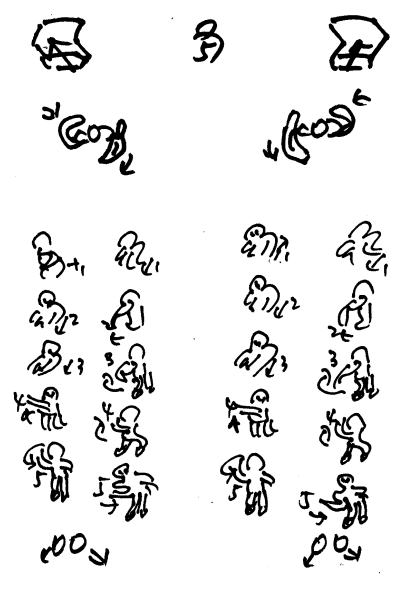 5
1 1 1 1
2 2 2
3 3 3 3
4 4 4 4
5 5 5 5